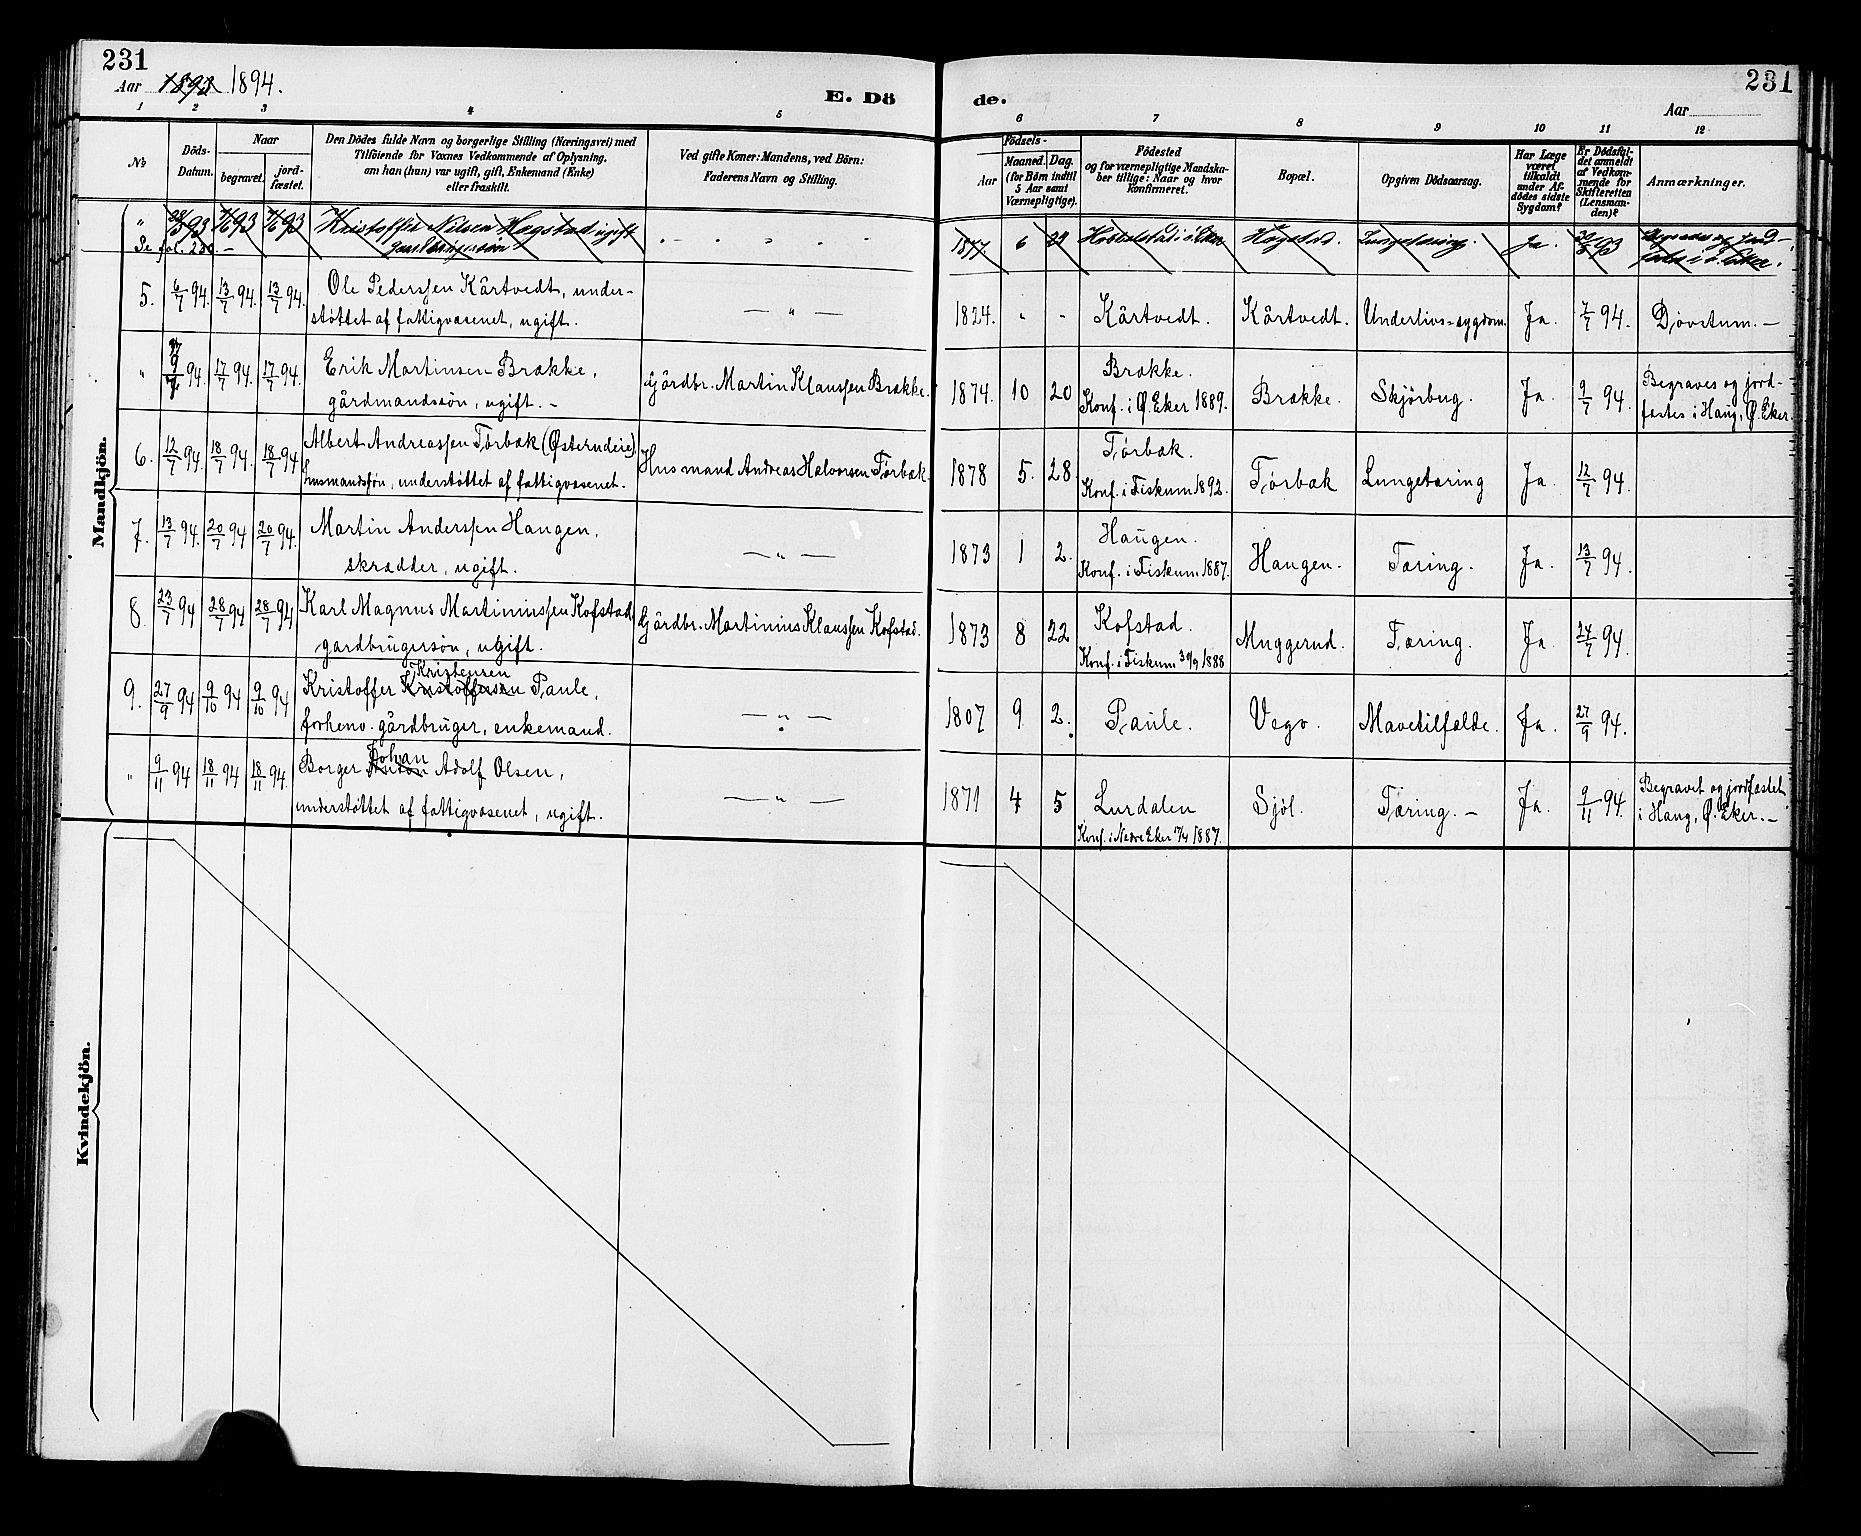 231
Aar 1893 1894.
E. Dö
de.
231
Aar
1 2 3 4 5 6 7 8 9 10 11 12
No
Döds-Datum.
Naar
begravet.
jord-fæstet.
Den Dödes fulde Navn og borgerlige Stilling (Næringsvei) med
Tilföiende for Voxnes Vedkommende af Oplysning,
om han (hun) var ugift, gift, Enkemand (Enke)
eller fraskilt.
Ved gifte Koner: Mandens, ved Börn:
Faderens Navn og Stilling.
Födsels-
Aar
Maaned.
Dag.
(for Börn indtil
5 Aar samt
Værnepligtige).
Födested
og for værnepligtige Mandska-
ber tillige: Naar og hvor
Konfirmeret.
Bopæl.
Opgiven Dödsaarsag.
Har Læge
været
tilkaldt
under Af-
dödes sidste
Sygdom?
Er Dödsfal-
det anmeldt
af Vedkom-
mende for
Skifteretten
(Lensman-
den)?
Anmærkninger.
Mandkjön.
" 28/5 93 4/6 93 4/6 93 Kristoffer Nilsen Hagstad ugift
gaardbrugersøn
1877 6 29 Hagstad. Lungetæring. Ja. 30/5 93
Se fol. 230. –
5. 6/7 94. 13/7 94. 13/7 94. Ole Pederssen Kårtvedt, under-
støttet af fattigvæsenet, ugift. — " —
1824. " - Kårtvedt. Kårtvedt. Underlivs-sygdom. Ja. 7/7 94. Døvstum. –
" 9/7 94. 17/7 94. 17/7 94. Erik Martinsen Brække,
gårdmandssøn, ugift. –
Gårdbr. Martin Klaussen Brække.
1874. 10 20 Brække.
Konf. i Ø. Eker 1889. Brække. Skjørbug. Ja. 9/7 94. Begraves og jord-
festes i Haug, Ø. Eker.
6. 12/7 94. 18/7 94. 18/7 94 Albert Andreassen Tørbæk (Østerudeie)
husmandssøn, understøttet af fattigvæsenet.
Husmand Andreas Halvorsen Tørbæk.
1878 5. 28. Tørbæk.
Konf. i Fiskum 1892. Tørbæk Lungetæring Ja. 12/7 94.
7. 13/7 94. 20/7 94 20/7 94. Martin Anderssen Haugen,
skrædder, ugift. — " —
1873 1 2. Haugen.
Konf. i Fiskum 1887. Haugen. Tæring. Ja. 13/7 94.
8. 23/7 94 28/7 94 28/7 94 Karl Magnus Martiniussen Kofstad
gardbrugersøn, ugift.
Gårdbr. Martinius Klaussen Kofstad.
1873 8 22 Kofstad.
Konf. i Fiskum 30/9 1888 Muggerud. Tæring. Ja 24/7 94.
Kristensen
9. 27/9 94 9/10 94 9/10 94 Kristoffer Kristoffersen Paule,
forhenv. gårdbruger, enkemand. — " —
1807 9 2. Paule. Vego. Mavetilfælde. Ja. 27/9 94.
Johan
" 9/11 94 18/11 94 18/11 94. Borger Anton Adolf Olsen,
understøttet af fattigvæsenet, ugift. — " —
1871 4 5 Lurdalen
Konf. i Nedre Eker 17/4 1887. Sjøl. Tæring. – Ja. 9/11 94. Begravet og jordfæstet
i Haug, Ø. Eker. –
Kvindekjön.